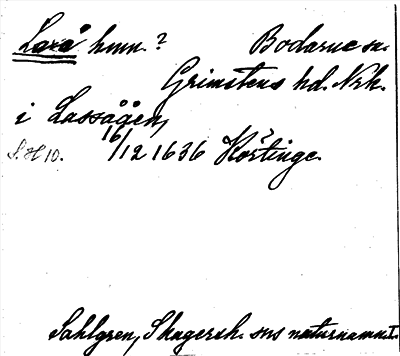 Laxå hmn.? Bodarne sn.
Grimstens hd. Nrk.
i Lassågen,
S.H 10. 16/12 1636 Kostinge.
Sahlgren, Skagersh. sns naturnamn.I.